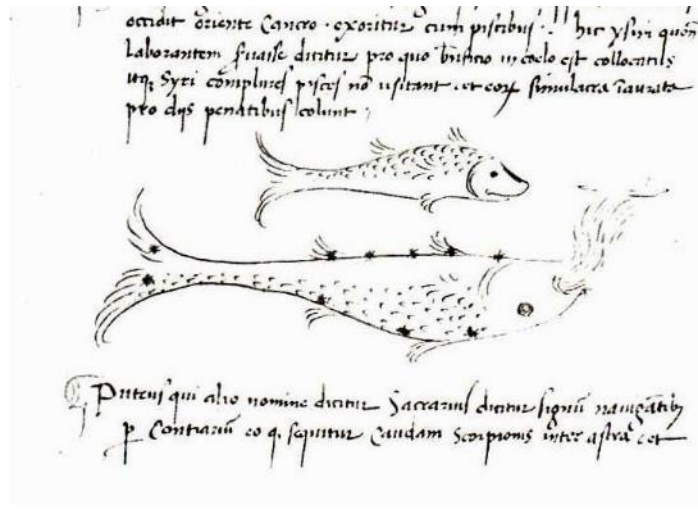 occidit oriente Cancro · exoritur cum piscibus · hic ysim quōn
laborantem fuisse dicitur pro quo bn̄ficio in coelo est collocatus
itq, Syri complures pisces nō usitant · et eorꝝ simulacra īaurata
pro dijs penatibus colunt ·
Puteus qui alio nomine dicitur Sacrarius dicitur signū nauigātibꝫ
ꝑ Contrariū eo q, sequitur Caudam Scorpionis inter astra, et